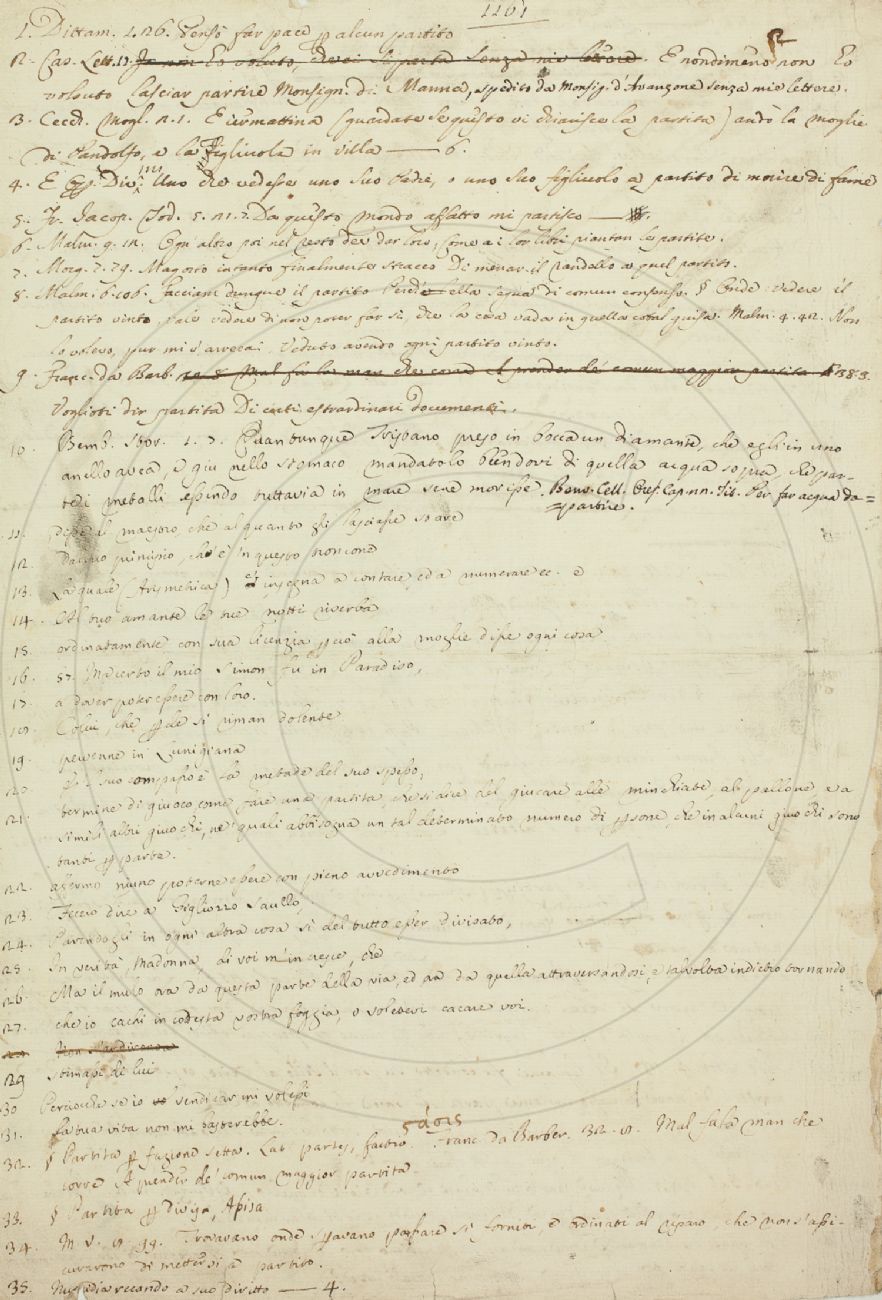 1161
1. Dittam. 1. 26. Pensò far pace p alcun partito
2. Cas. Lett. 13. Io non Eo voluto, che si parta senza mie lettere. E nondimeno non Eo
voluto lasciar partire Monsign. di Manna, spedito da Monsig. d'Avanzone senza mie lettere.
3. Cecch. Mogl. 2. 1. E iermattina (guardate se questo vi chiarisce la partita) andò la moglie
di Pandolfo, e la Figliuola in villa — 6.
4. E Div. Uno che vedesse uno suo Padre, o uno suo figliuolo a partito di morire di fame
5. Fr. Jacop. Tod. 5. 21. 7. Da questo mondo affatto mi partisco —
6. Malm. 9. 12. Ogn' altro poi nel resto dee dar loro, Come a i lor libri piantan le partite.
7. Morg. 7. 79. Margotto intanto finalmente stracco Di menar il randello a quel partito.
8. Malm. 6. 106. Facciam dunque il partito della segua di comun consenso. § Onde vedere il
partito vinto, vale vedere di non poter far sì, che la cosa vada in quella cotal guisa. Malm. 4. 42. Non
lo volevo, pur mi v'arrecai, Veduto avendo ogni partito vinto.
9. Franc. da Barb. Mal fa la man che corre A prender de' comun maggior partita 383.
Voglioti dir partita Di certi estraordinari documenti.
10. Bemb. Stor. 1. 3. Quantunque Trisbano preso in bocca un diamante, che egli in uno
anello avea, e giu nello stomaco mandatolo bèndovi di quella acqua sopra, che par-
tedi metalli essendo tuttavia in mare sene morisse. Benv. Cell. Oref. Cap. 22. Tit. Per far acqua da=
=partire.
11. disse al maestro che alquanto gli lasciasse stare
12. dal suo principio, che è in questo troncone
13. La quale (Arismetica) insegna a contare, ed a numerare ec. e
14. Al tuo amante le tue notti riserba
15. ordinatamente con sua licenzia pciò alla moglie disse ogni cosa
16. 57. Ma certo il mio Simon fu in Paradiso,
17. a dover poter essere con loro.
18. Colui, che pde si riman dolente
19. pervenne in Lunigiana
20 E 'l suo compasso è la metade del suo spesso,
21. termine di giuoco come, fare una partita, che si dice del giucare alle minchiate, al pallone, e a
simili altri giuochi, ne' quali abbisogna un tal determinato numero di psone, che in alcuni giuochi sono
tanti p parte.
22. afermo niuno poterne essere con pieno avvedimento
23. Fecero dire a Gigliozzo Saullo,
24. Parendogli in ogni altra cosa si del tutto esser divisato,
25. In verità, Madonna, di voi m'incresce, che
26. Ma il mulo ora da questa parte della via, ed ora da quella attraversandosi, e talvolta indietro tornando
27. che io cachi in codesta vostra foggia, o volessevi cacare voi.
29 stimasi de lui
30 Perciocchè se io vendicar mi volessi
31. la tua vita non mi basterebbe.
32. § Partita p fazione setta. Lat. partes, factio. στάσις Franc. da Barber. 32. 8. Mal fa la man che
corre A prender de' comun maggior partita.
33. § Partita p Divisa, Assisa
34. M. V. 8. 99. Trovavano onde speravano passare sì forniti, e ordinati al riparo, che non s'assi-
curarono di mettersi a partito.
35. recando a suo diritto — 4.